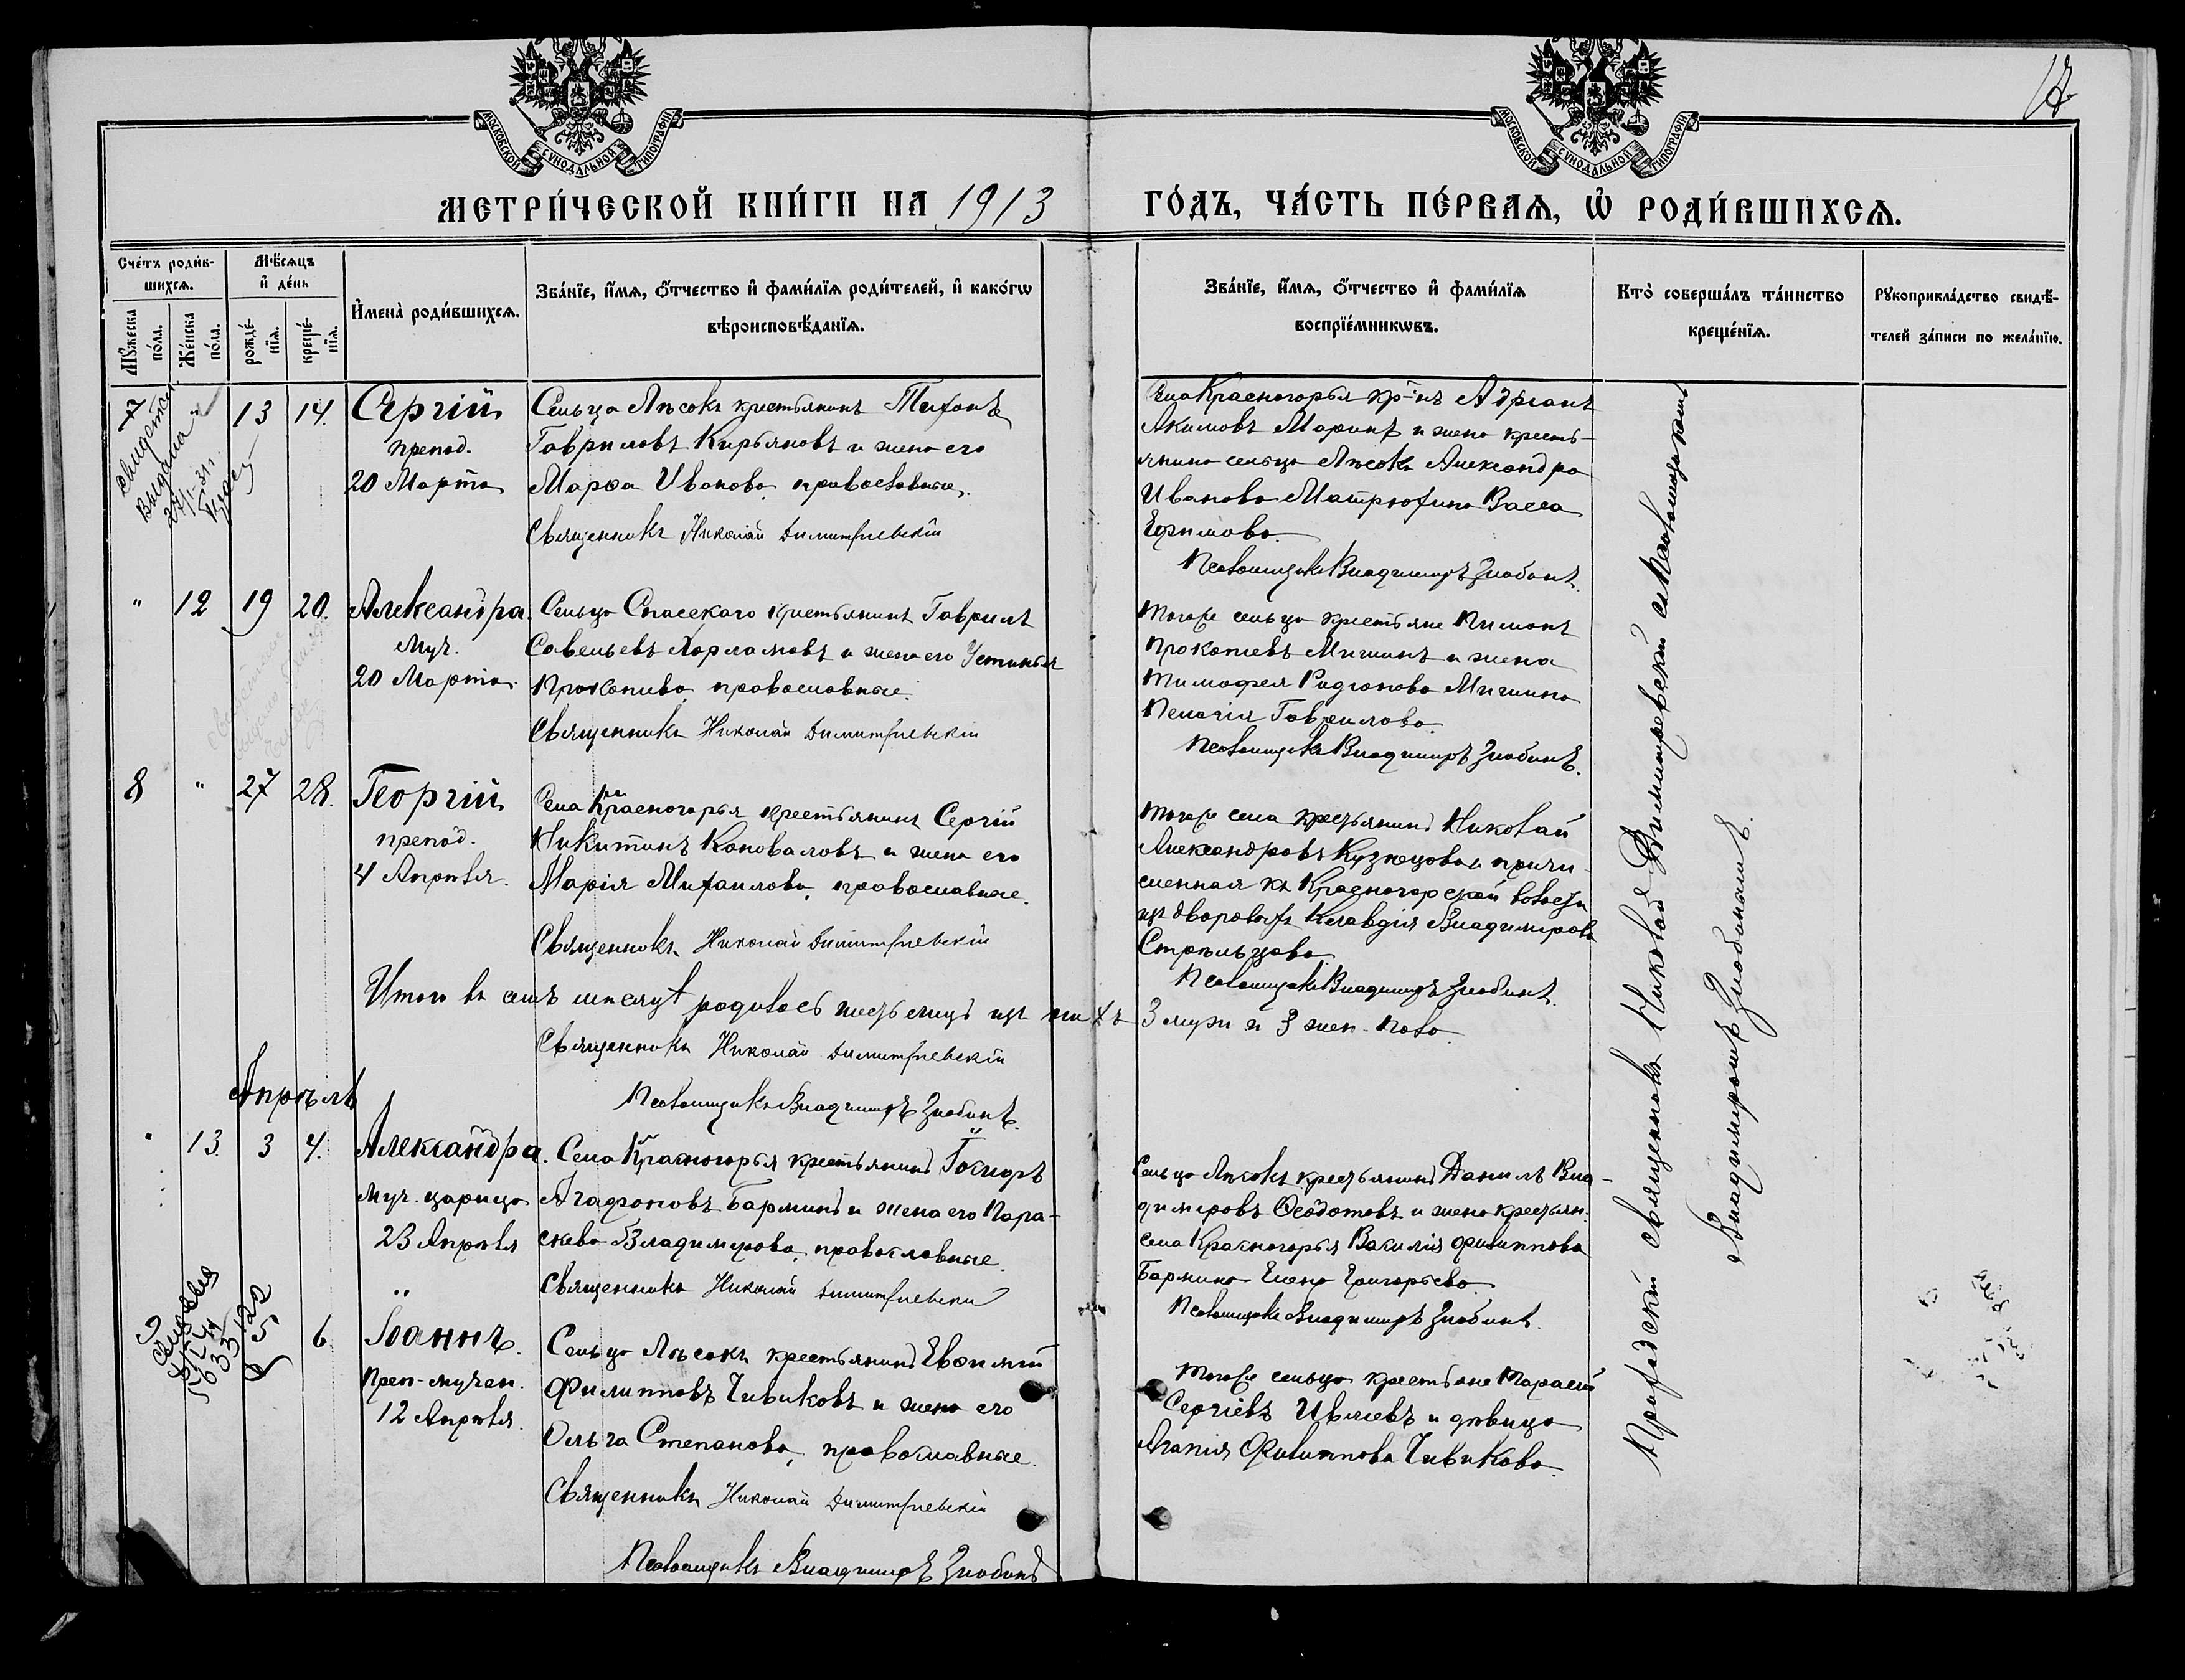 МОСКОВСКОЙ СѴНОДАЛЬНОЙ ТИПОГРАФІИ
МОСКОВСКОЙ СѴНОДАЛЬНОЙ ТИПОГРАФІИ
МЕТРИ́ЧЕСКОЙ КНИ́ГИ НА 1913
ГО́ДЪ, ЧА́СТЬ ПЕ́РВАѦ, Ѡ҆ РОДИ́ВШИХСѦ.
Сче́тъ роди́в-
шихсѧ.
Мѣ́сѧцъ
и҆ де́нь
Мꙋ́жеска
по́ла.
Же́нска
по́ла.
рожде́-
нїѧ.
креще́-
нїѧ.
И҆мена̀ роди́вшихсѧ.
Зва́нїе, и҆́мѧ, ѻ҆́тчество и҆ фами́лїѧ роди́телей, и҆ како́гѡ
вѣроисповѣ́данїѧ.
Зва́нїе, и҆́мѧ, ѻ҆́тчество и҆ фами́лїѧ
воспрїе́мникѡвъ.
Кто̀ соверша́лъ та́инство
креще́нїѧ.
Рꙋкоприкла́дство свидѣ́-
телей за́писи по жела́нїю.
7 " 13 14. Сергій
препод.
20 Марта
Выдана
Сельца Лѣсокъ крестьянинъ Тихонъ
Гавриловъ Кирьяновъ и жена его
Марѳа Иванова, православные.
Священникъ Николай Димитріевскій
Села Красногорья кр-нъ Адріанъ
Акимовъ Маринъ и жена кресть-
янина сельца Лѣсокъ Александра
Иванова Матрюхина Васса
Ефимова.
Псаломщикъ Владимиръ Злобинъ.
" 12 19 20. Александра
муч.
20 Марта.
Сельца Спасскаго крестьянинъ Гавріилъ
Савельевъ Харламовъ и жена его Устинья
Прокопиева, православные.
Священникъ Николай Димитріевскій
Тогоже сельца крестьяне Пимонъ
Прокопиевъ Мишинъ и жена
Тимофея Родіонова Мишина
Пелагія Гаврилова.
Псаломщикъ Владимиръ Злобинъ.
8 " 27 28. Георгій
препод.
4 Апрѣля.
Села Красногорья крестьянинъ Сергій
Никитинъ Коноваловъ и жена его
Марія Михаилова, православные.
Священникъ Николай Димитріевскій
Тогоже села крестьянинъ Николай
Александровъ Кузнецовъ и причи-
сленная къ Красногорской волости
изъ дворовыхъ Клавдія Владимірова
Стрѣльцова.
Псаломщикъ Владимиръ Злобинъ.
Итого въ семъ мѣсяцѣ родилось шестьлицъ изъ нихъ 3 мужи и 3 жен. пола.
Священникъ Николай Димитріевскій
Псаломщикъ Владимиръ Злобинъ.
Апрѣль
" 13. 3 4. Александра.
Муч. царица
23 Апрѣля
Села Красногорья крестьянинъ Ісидоръ
Агафоновъ Барминъ и жена его Пара-
скева Владимирова, православные.
Священникъ Николай Димитріевскій
Сельца Лѣсокъ крестьянинъ Данилъ Вла-
димировъ Ѳеодотовъ и жена крестьян.
села Красногорья Василія Филиппова
Бармина Елена Григорьева.
Псаломщикъ Владимиръ Злобинъ.
9 5 6 Іоаннъ.
Преп-мучен.
12 Апрѣля.
Сельца Лѣсокъ крестьянинъ Евѳимій
Филипповъ Чивиковъ и жена его
Ольга Степанова, православные.
Священникъ Николай Димитріевскій
Псаломщикъ Владимиръ Злобинъ
Тогоже сельца крестьяне Тарасій
Сергіевъ Ивлиевъ и дѣвица
Агапія Филиппова Чивикова.
священникъ Николай Димитріевскій съ псаломщикомъ
Владимиромъ Злобинымъ.